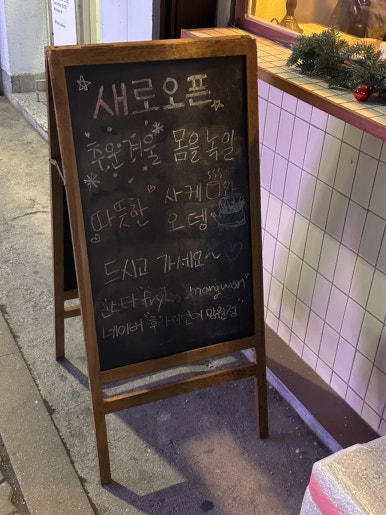 새로오픈
추운겨울 몸을 녹일
따뜻한 사케와
오뎅
드시고 가세요~
인스타 mangwon"
네이버 망원점"